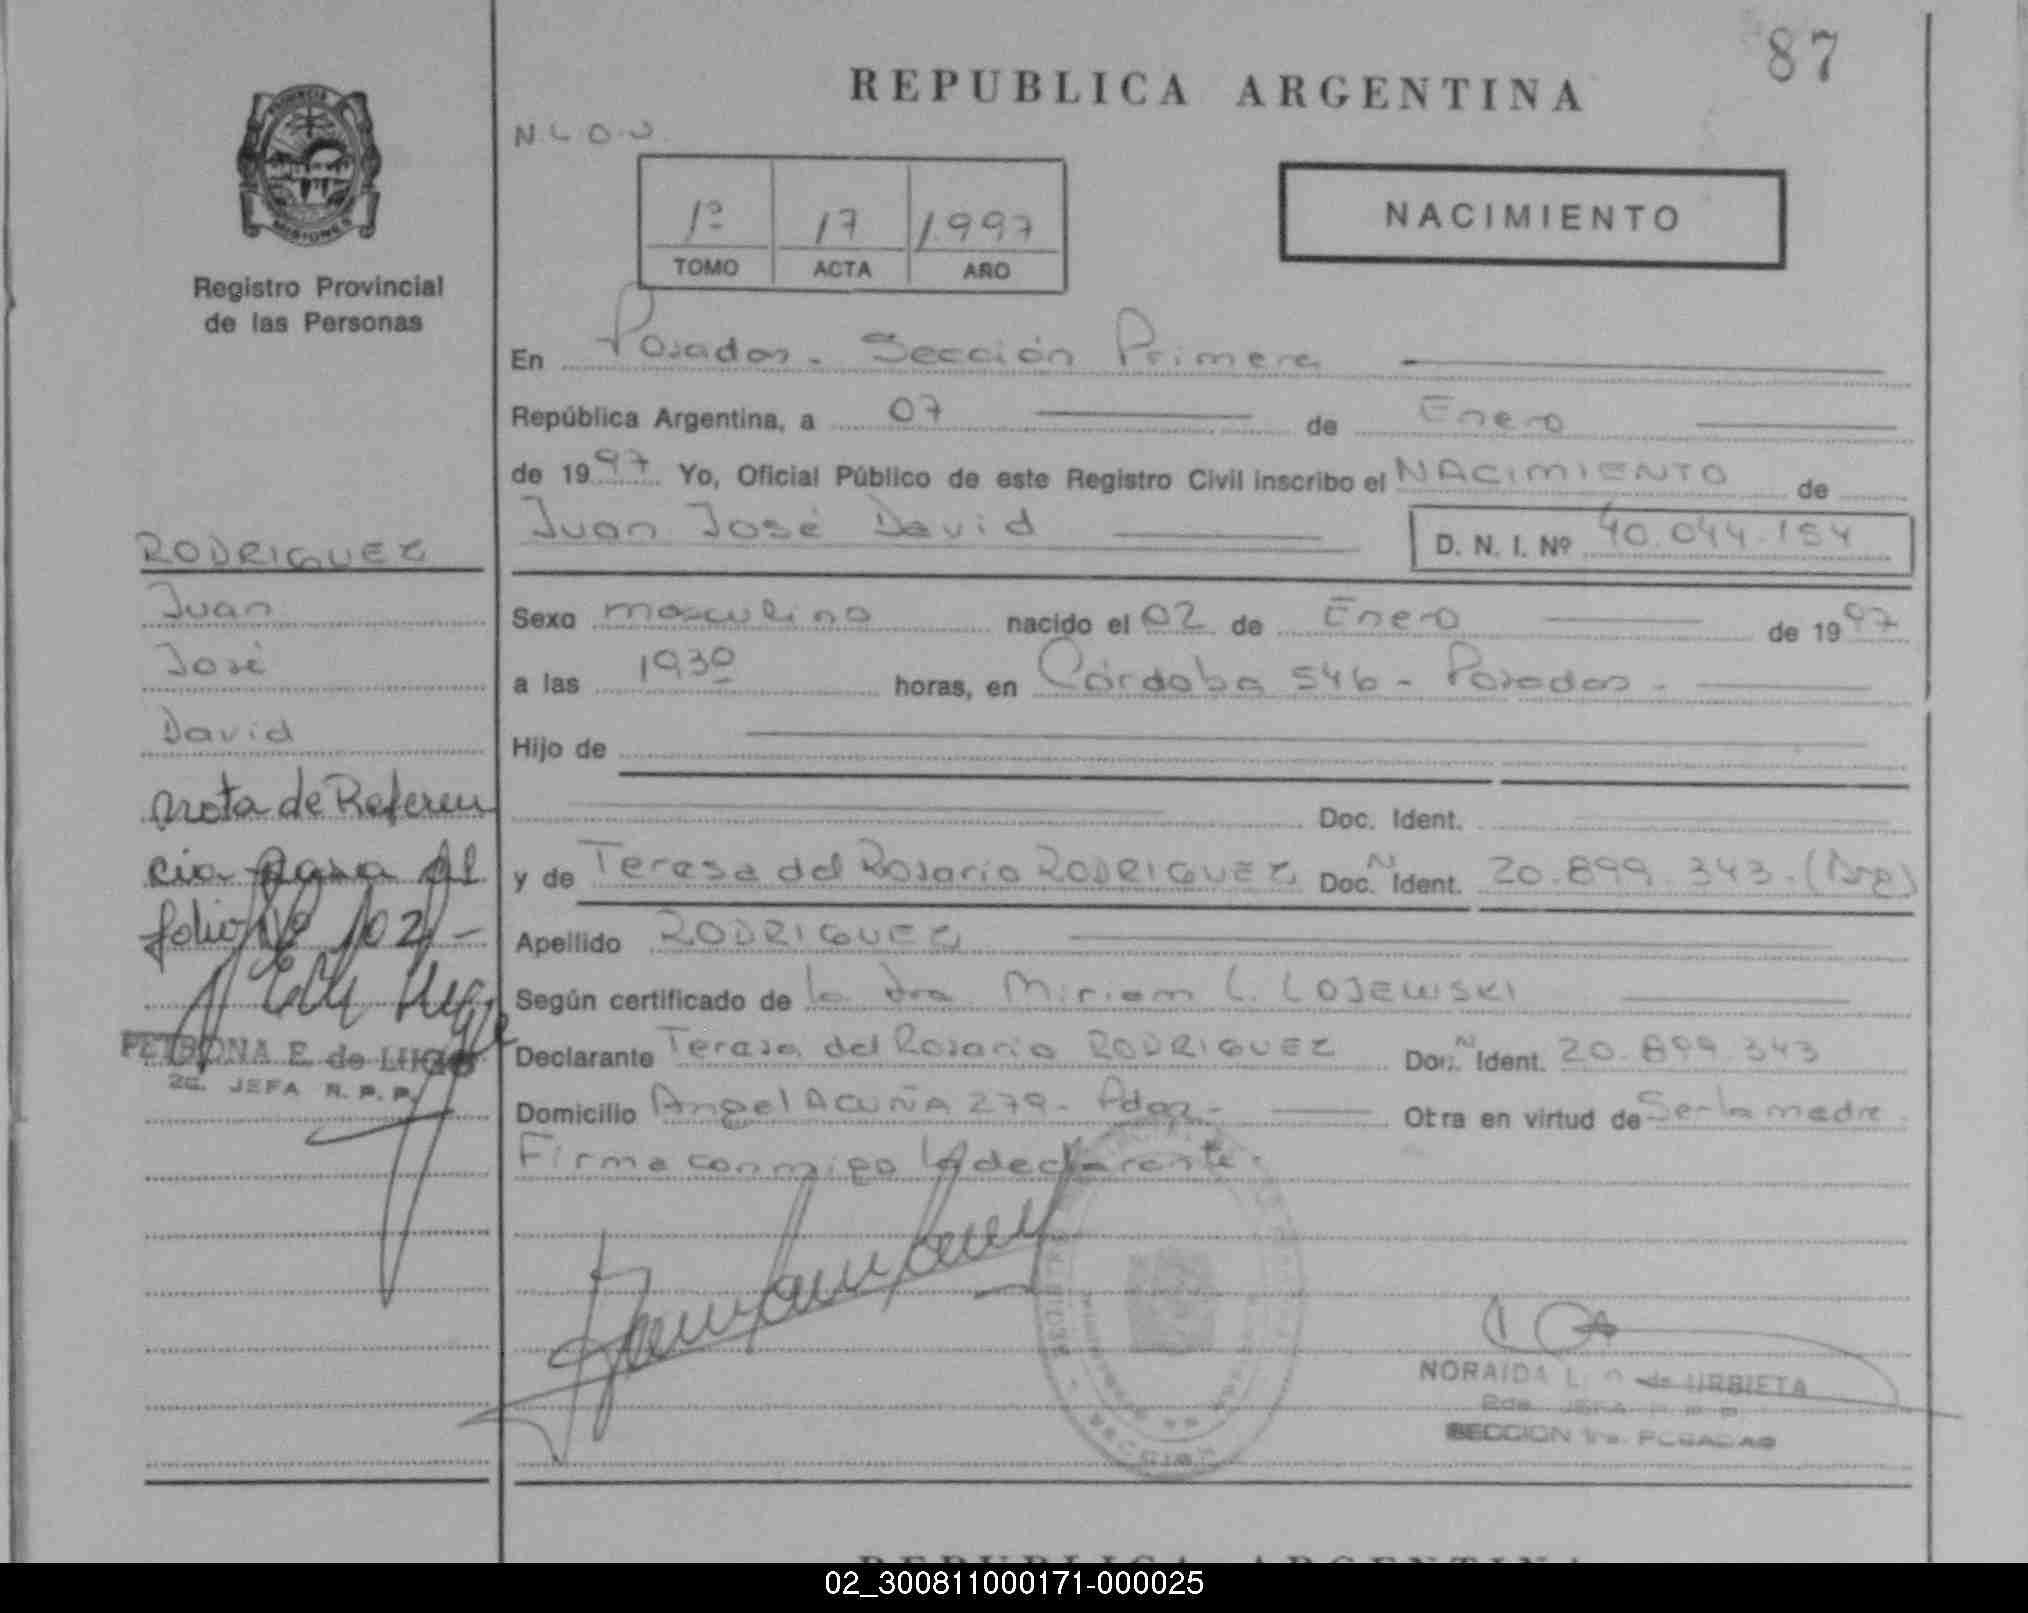 87
REPUBLICA ARGENTINA
N.L.O.J.
1º 17 1.997
TOMO ACTA AÑO
NACIMIENTO
PROVINCIA
MISIONES
Registro Provincial
de las Personas
En Posadas - Sección Primera
República Argentina, a 07 de Enero
de 1997 Yo, Oficial Público de este Registro Civil inscribo el NACIMIENTO de
Juan José David
D. N. I. Nº 40.044.154
RODRIGUEZ
Juan
José
David
Sexo masculino nacido el 02 de Enero de 1997
a las 19,30 horas, en Córdoba 546 - Posadas -
Hijo de
Doc. Ident.
y de Teresa del Rosario RODRIGUEZ Doc. N Ident. 20.899.343.(Arg)
Apellido RODRIGUEZ
Según certificado de la Dra. Miriam L. LOJEWSKI
Declarante Teresa del Rosario RODRIGUEZ Doc. N Ident. 20.899.343
Domicilio Angel ACUÑA 279 - Pdas - Otra en virtud de Ser la madre.
Firma conmigo la declarante.
nota de Referen
cia para el
folio Nº 102 -
PETRONA E. de LUGO
2a. JEFA R. P. P.
NORAIDA L. de URBIETA
2da. JEFA R. P. P.
SECCION 1ra. POSADAS
SECCION
REPUBLICA ARGENTINA
02_300811000171-000025